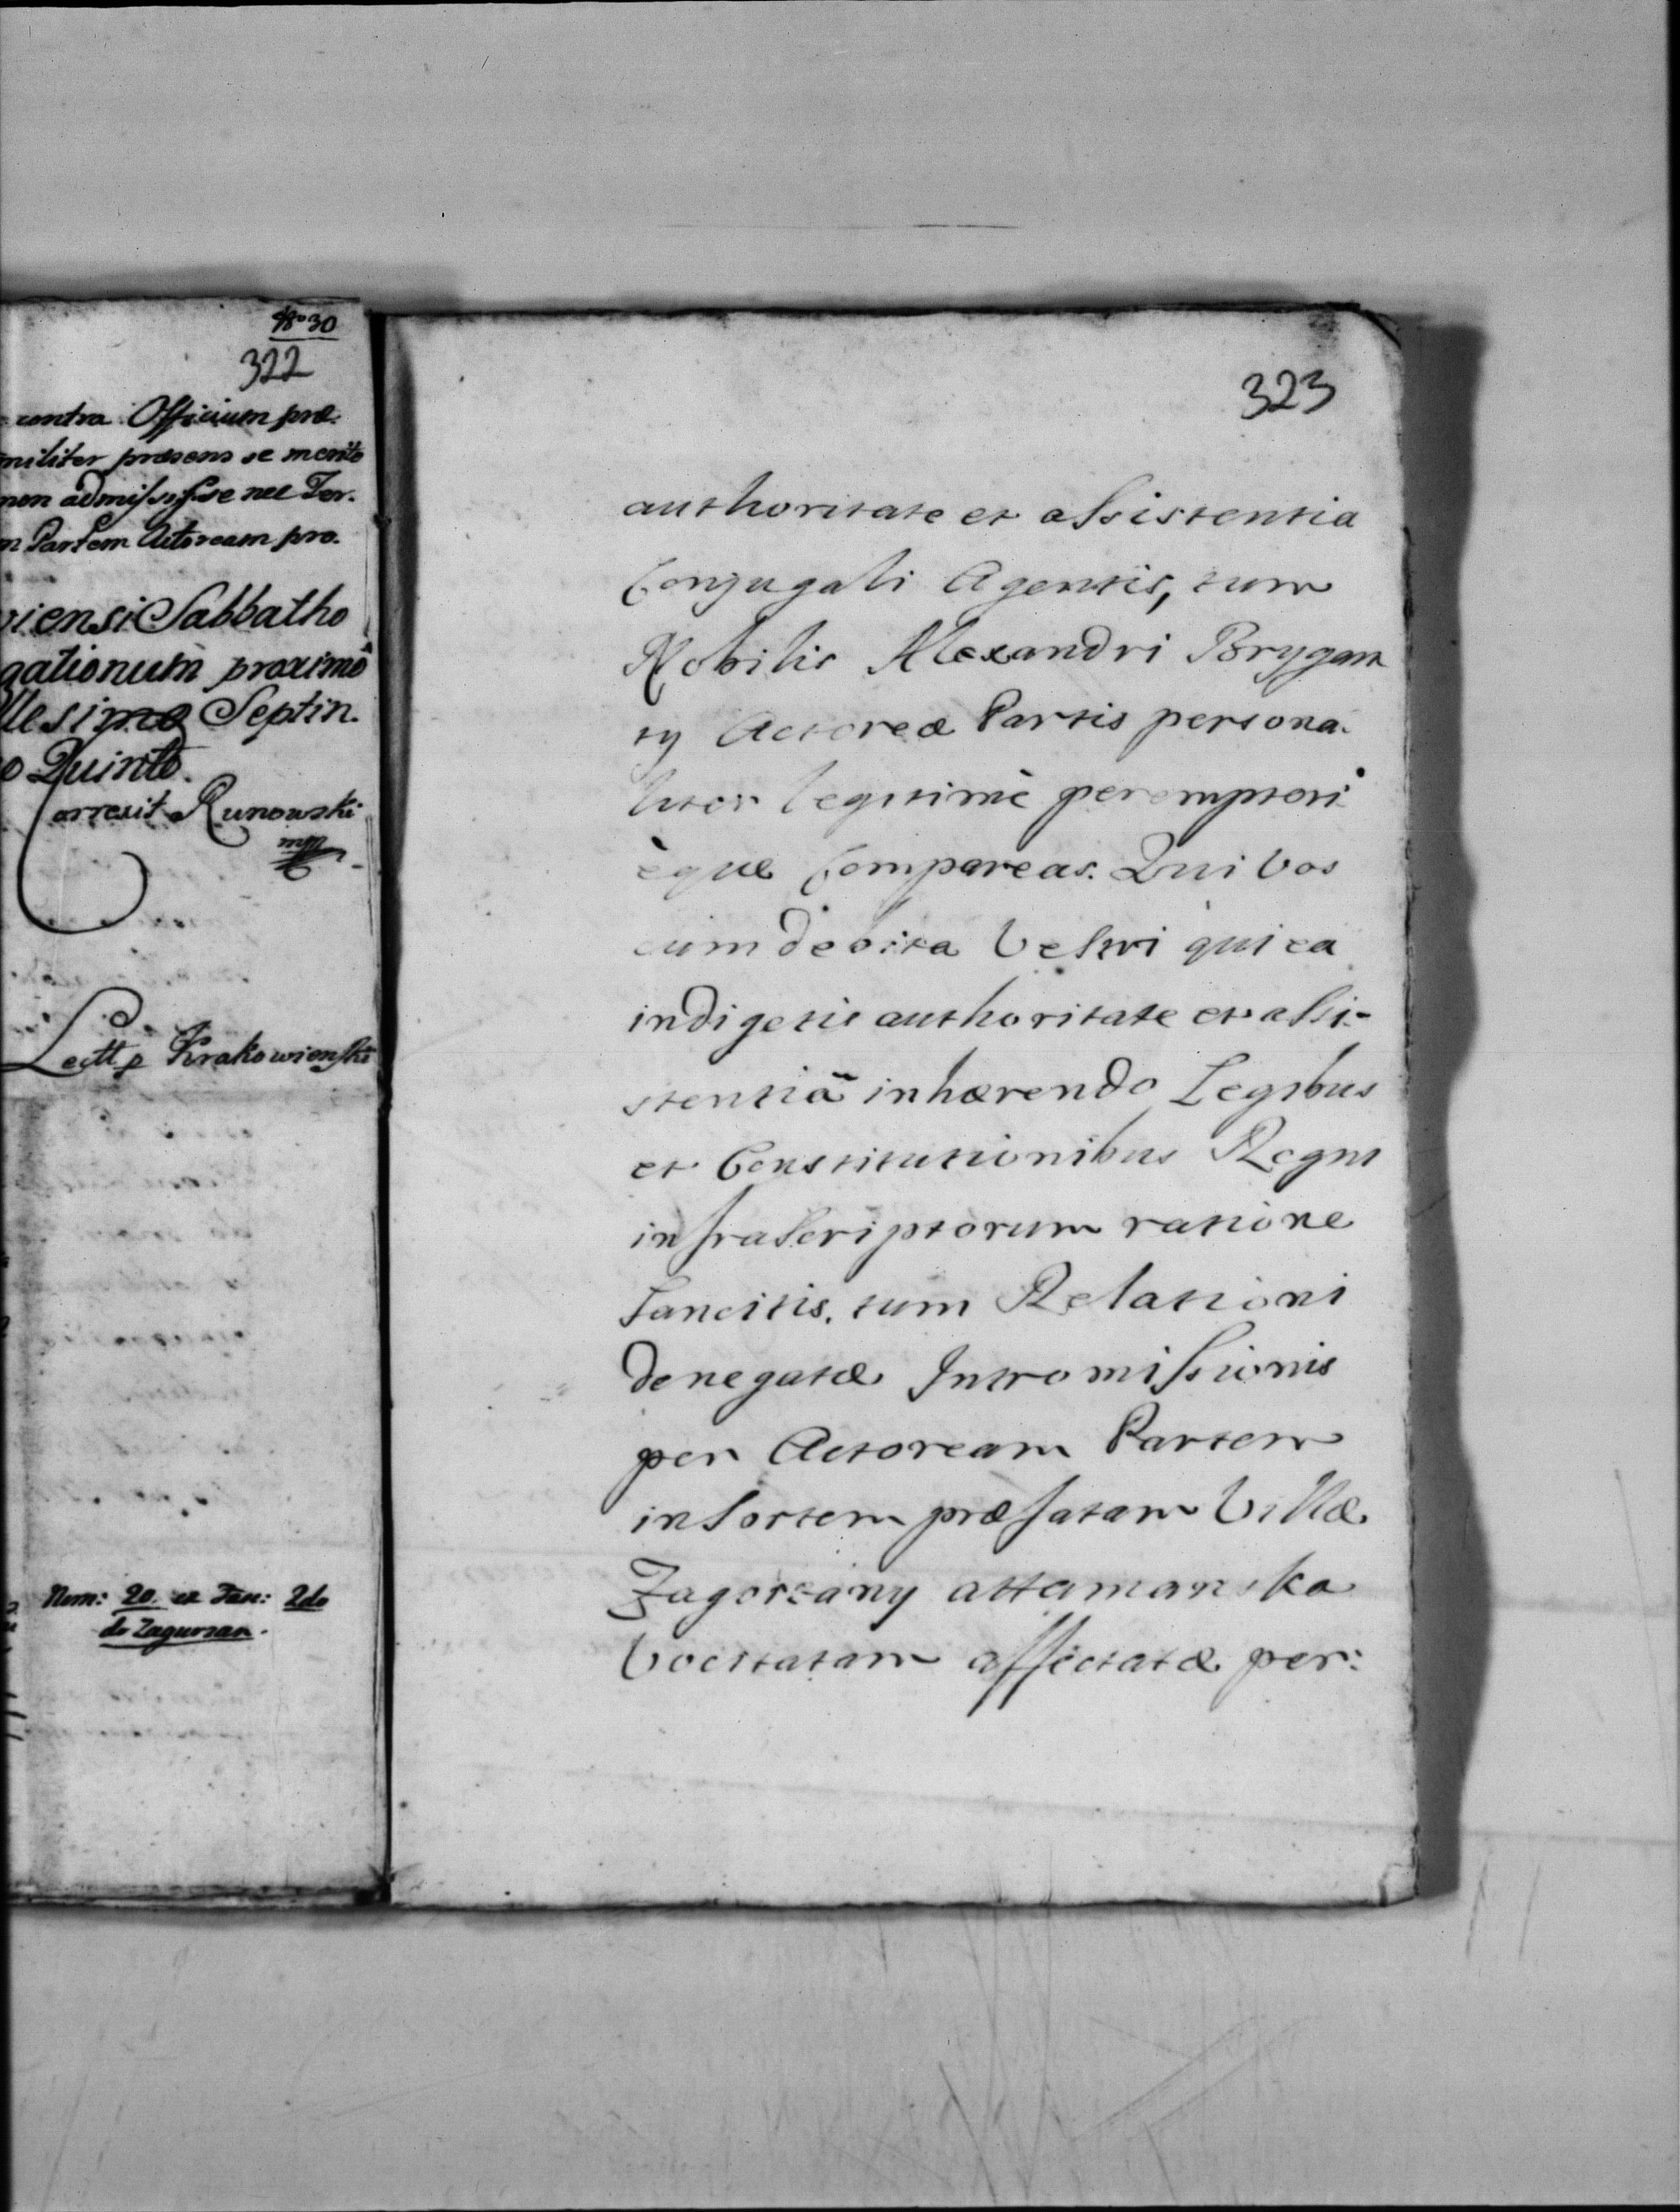 No 30
322
contra Officium præ-
militer præsens se merito
non admisisse nec Ter-
Partem Actoream pro-
Sabbatho
gationum proximô
llesimo Septin-
o Quinto.
Correxit Runowski
mpp
Lectt p Krakowienski
Num: 20. ex Fas: 2do
do Zagurzan.
323
authoritate et assistentia
Conjugali Agentis, tum
Nobilis Alexandri Brygan
ty Actoreæ Partis persona-
liter legitimè peremptori
èque Compareas. Qui Vos
cum debita Vestri qui ea
indigetis authoritate et assi-
stentiâ inhærendo Legibus
et Constitutionibus Regni
infrascriptorum ratione
Sancitis, tum Relationi
denegatæ Intromissionis
per Actoream Partem
in Sortem præfatam Villæ
Zagorzany attamanska
Vocitatam affectatæ per: